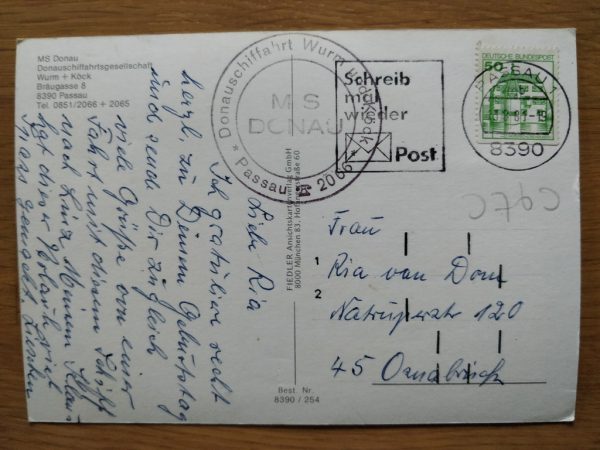 MS Donau
Donauschiffahrtsgesellschaft
Wurm + Köck
Bräugasse 8
8390 Passau
Tel. 0851/2066 + 2065
Donauschiffahrt Wurm + Köck
* Passau ☎ 2066 *
MS
DONAU
Schreib
mal
wieder
Post
DEUTSCHE BUNDESPOST
50
PASSAU 1
8390
Liebe Ria
Ich gratuliere recht
herzl. zu Deinem Geburtstag
und sende Dir zugleich
viele Grüße von einer
Fahrt mit diesem Schiff
nach Linz. Meinem Klaus
hat dieser Urlaub
gemacht.
FIEDLER Ansichtskartenverlag GmbH
8000 München 83,
Frau
1
Ria van Dom
2
Natruperstr 120
45 Osnabrück
Best. Nr.
8390 / 254